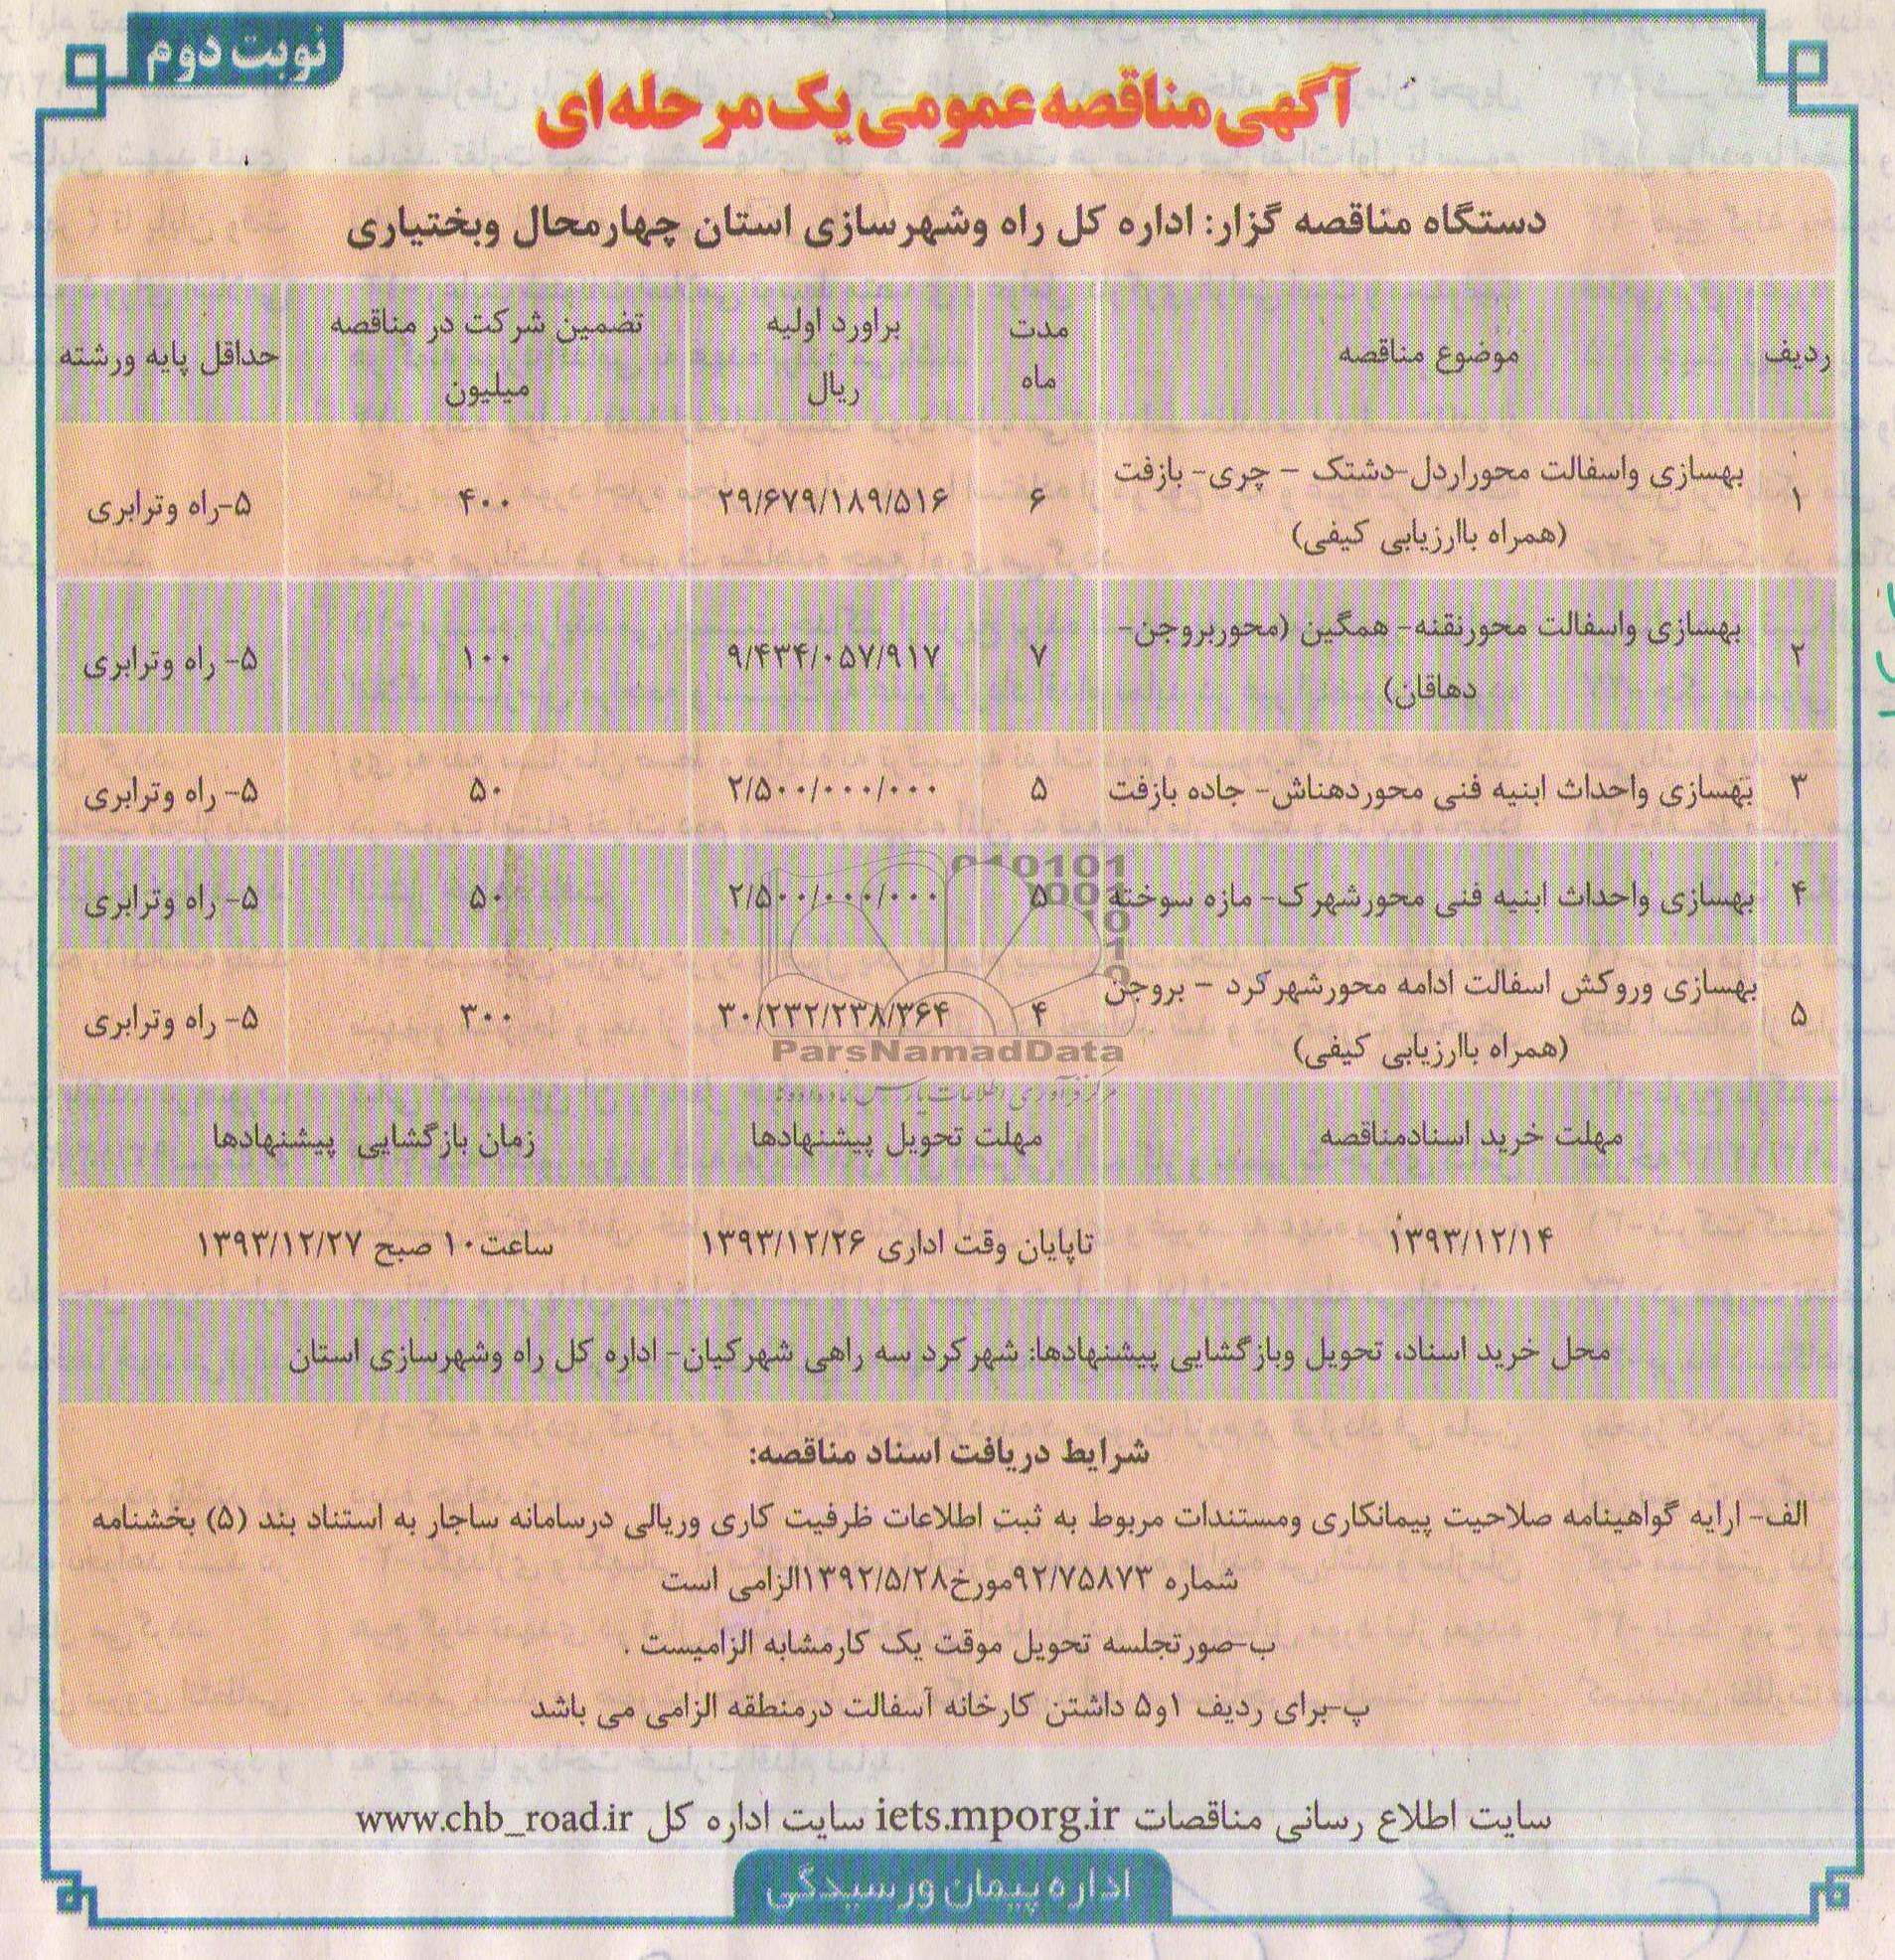 نوبت دوم
آگهی مناقصه عمومی یک مرحله ای
دستگاه مناقصه گزار: اداره کل راه وشهرسازی استان چهارمحال وبختیاری
ردیف	موضوع مناقصه	مدت ماه	براورد اولیه ریال	تضمین شرکت در مناقصه میلیون	حداقل پایه ورشته
۱	بهسازی واسفالت محوراردل-دشتک – چری- بازفت (همراه باارزیابی کیفی)	۶	۲۹/۶۷۹/۱۸۹/۵۱۶	۴۰۰	۵-راه وترابری
۲	بهسازی واسفالت محورنقنه- همگین (محوربروجن- دهاقان)	۷	۹/۴۳۴/۰۵۷/۹۱۷	۱۰۰	۵- راه وترابری
۳	بهسازی واحداث ابنیه فنی محوردهناش- جاده بازفت	۵	۲/۵۰۰/۰۰۰/۰۰۰	۵۰	۵- راه وترابری
۴	بهسازی واحداث ابنیه فنی محورشهرک- مازه سوخته	۵	۲/۵۰۰/۰۰۰/۰۰۰	۵۰	۵- راه وترابری
۵	بهسازی وروکش اسفالت ادامه محورشهرکرد – بروجن (همراه باارزیابی کیفی)	۴	۳۰/۲۳۲/۲۳۸/۳۶۴	۳۰۰	۵- راه وترابری
ParsNamadData
مهلت خرید اسنادمناقصه	مهلت تحویل پیشنهادها	زمان بازگشایی پیشنهادها
۱۳۹۳/۱۲/۱۴	تاپایان وقت اداری ۱۳۹۳/۱۲/۲۶	ساعت۱۰ صبح ۱۳۹۳/۱۲/۲۷
محل خرید اسناد، تحویل وبازگشایی پیشنهادها: شهرکرد سه راهی شهرکیان- اداره کل راه وشهرسازی استان
شرایط دریافت اسناد مناقصه:
الف- ارایه گواهینامه صلاحیت پیمانکاری ومستندات مربوط به ثبت اطلاعات ظرفیت کاری وریالی درسامانه ساجار به استناد بند (۵) بخشنامه
شماره ۹۲/۷۵۸۷۳مورخ۱۳۹۲/۵/۲۸الزامی است
ب-صورتجلسه تحویل موقت یک کارمشابه الزامیست .
پ-برای ردیف ۱و۵ داشتن کارخانه آسفالت درمنطقه الزامی می باشد
سایت اطلاع رسانی مناقصات iets.mporg.ir سایت اداره کل www.chb_road.ir
اداره پیمان ورسیدگی